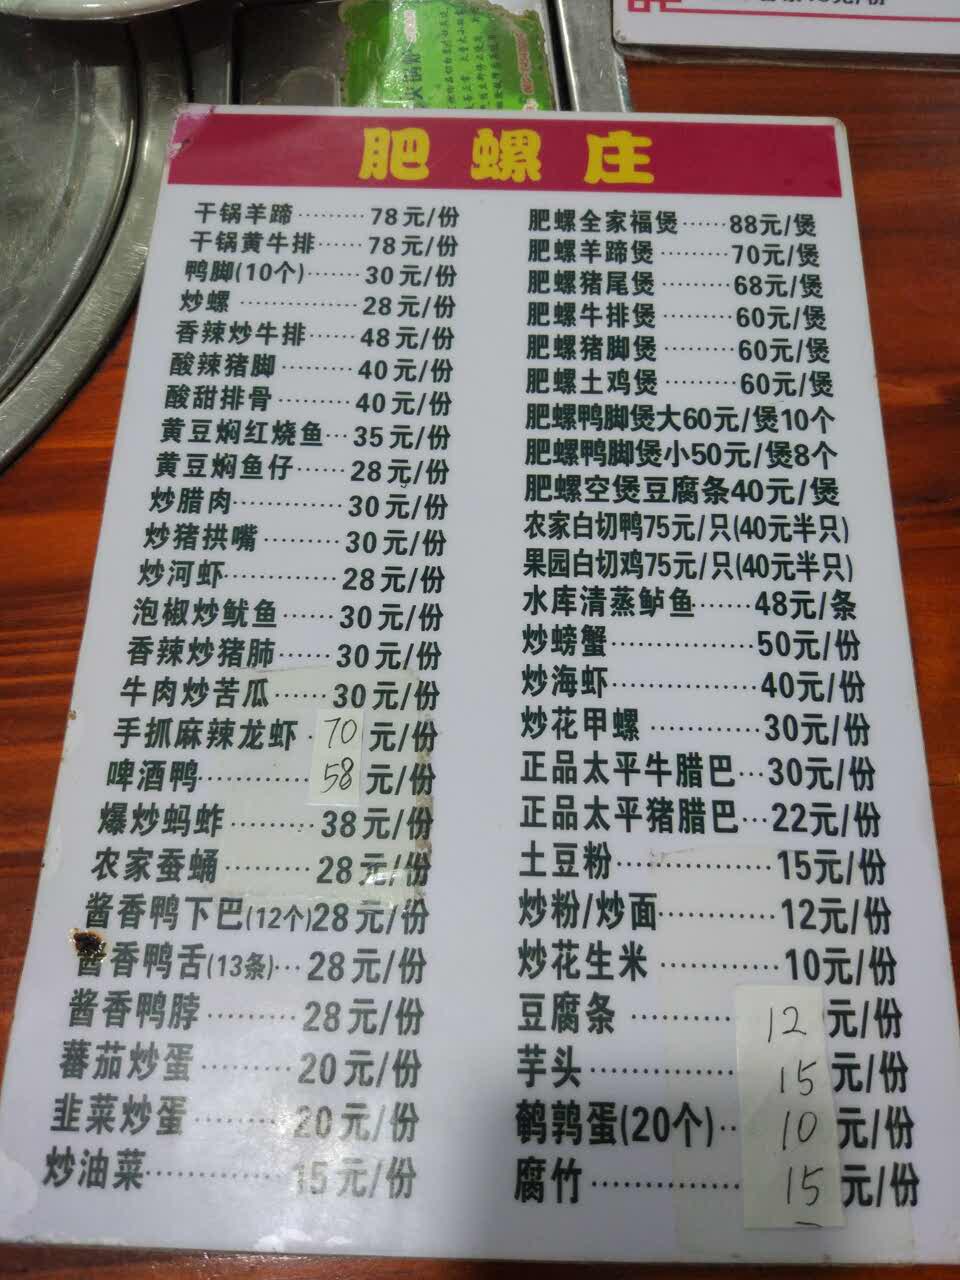 肥螺庄
干锅羊蹄………78元/份
干锅黄牛排……78元/份
鸭脚(10个)……30元/份
炒螺…………28元/份
香辣炒牛排……48元/份
酸辣猪脚………40元/份
酸甜排骨………40元/份
黄豆焖红烧鱼…35元/份
黄豆焖鱼仔……28元/份
炒腊肉…………30元/份
炒猪拱嘴………30元/份
炒河虾…………28元/份
泡椒炒鱿鱼……30元/份
香辣炒猪肺……30元/份
牛肉炒苦瓜……30元/份
手抓麻辣龙虾·70元/份
啤酒鸭…………58元/份
爆炒蚂蚱………38元/份
农家蚕蛹………28元/份
酱香鸭下巴(12个)28元/份
酱香鸭舌(13条)…28元/份
酱香鸭脖………28元/份
蕃茄炒蛋………20元/份
韭菜炒蛋………20元/份
炒油菜…………15元/份
肥螺全家福煲……88元/煲
肥螺羊蹄煲………70元/煲
肥螺猪尾煲………68元/煲
肥螺牛排煲………60元/煲
肥螺猪脚煲………60元/煲
肥螺土鸡煲………60元/煲
肥螺鸭脚煲大60元/煲10个
肥螺鸭脚煲小50元/煲8个
肥螺空煲豆腐条40元/煲
农家白切鸭75元/只(40元半只)
果园白切鸡75元/只(40元半只)
水库清蒸鲈鱼……48元/条
炒螃蟹……………50元/份
炒海虾……………40元/份
炒花甲螺…………30元/份
正品太平牛腊巴…30元/份
正品太平猪腊巴…22元/份
土豆粉……………15元/份
炒粉/炒面…………12元/份
炒花生米…………10元/份
豆腐条…………12元/份
芋头……………15元/份
鹌鹑蛋(20个)…10元/份
腐竹……………15元/份